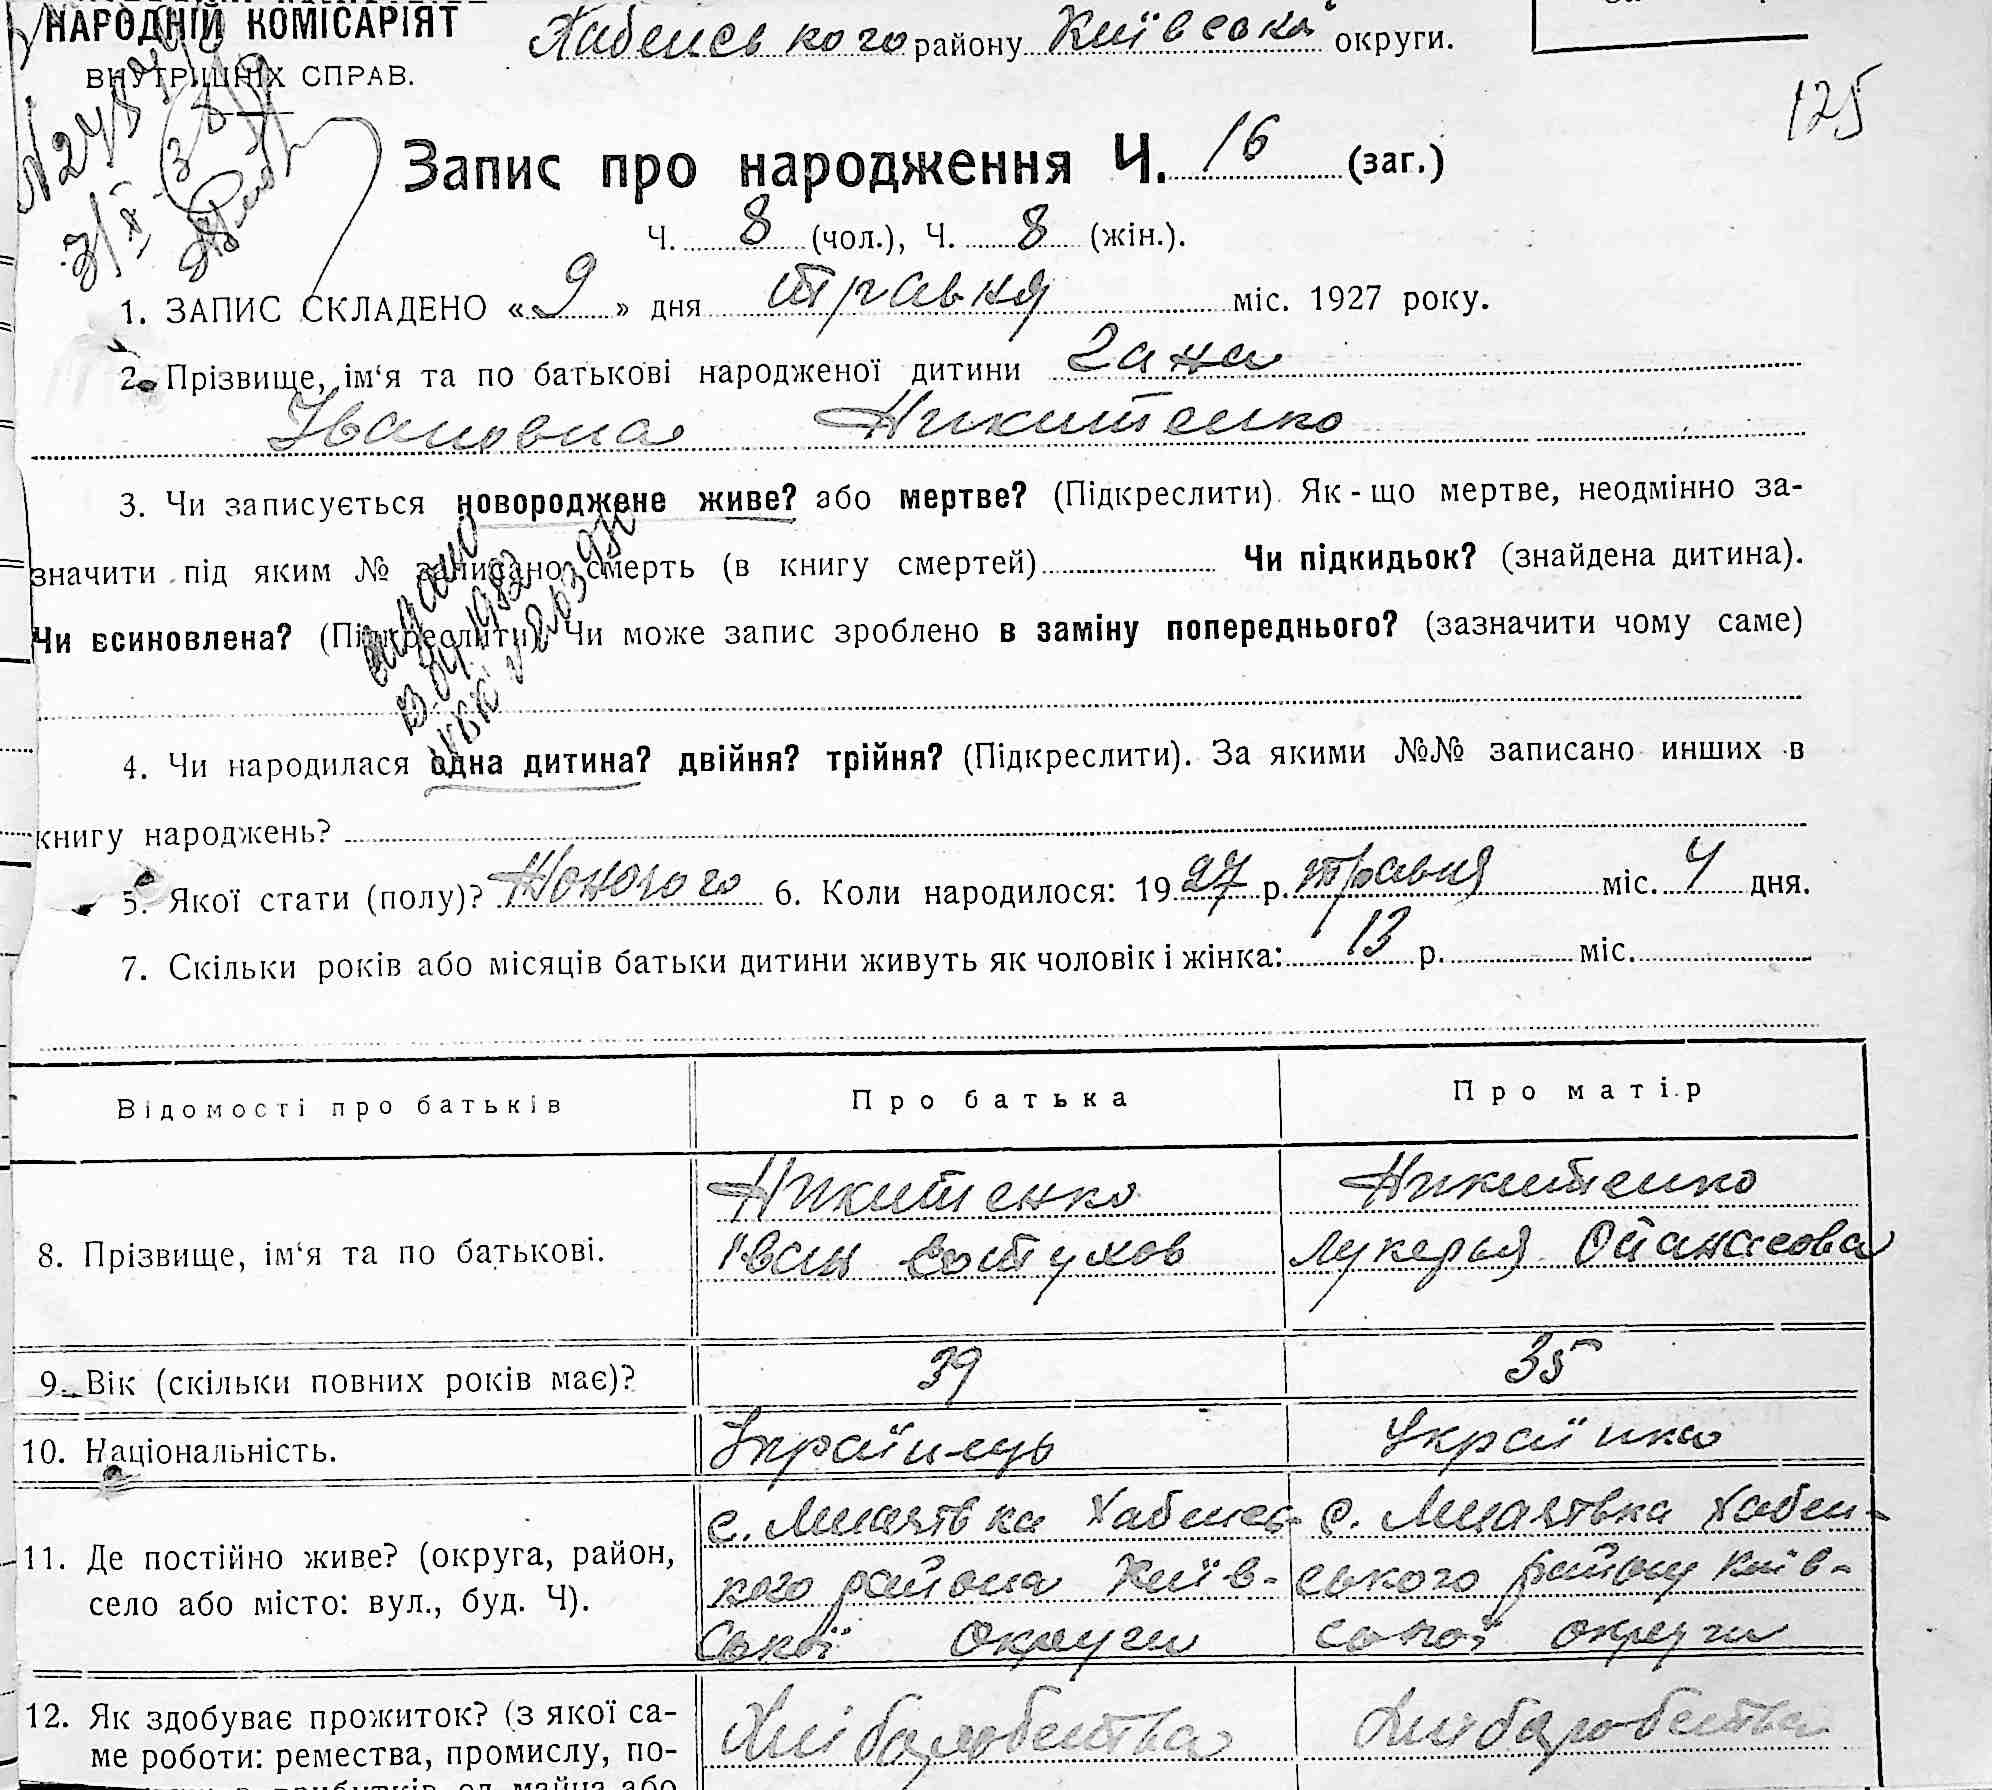 НАРОДНІЙ КОМІСАРІЯТ
ВНУТРІШНІХ СПРАВ.
Хабенського району Київська округи.
125
Запис про народження Ч. 16 (заг.)
Ч. 8 (чол.), Ч. 8 (жін.).
1. ЗАПИС СКЛАДЕНО «9» дня травня міс. 1927 року.
2. Прізвище, ім‘я та по батькові народженої дитини Гана
Івановна Никитенко
3. Чи записується новороджене живе? або мертве? (Підкреслити). Як-що мертве, неодмінно за-
значити під яким № записано смерть (в книгу смертей) Чи підкидьок? (знайдена дитина).
Чи всиновлена? (Підкреслити). Чи може запис зроблено в заміну попереднього? (зазначити чому саме)
4. Чи народилася одна дитина? двійня? трійня? (Підкреслити). За якими №№ записано инших в
книгу народжень?
5. Якої стати (полу)? Жоночого 6. Коли народилося: 1927 р. травня міс. 4 дня.
7. Скільки років або місяців батьки дитини живуть як чоловік і жінка: 13 р. міс.
Відомості про батьків Про батька Про матір
Никитенко Никитенко
8. Прізвище, ім‘я та по батькові. Іван Лукерья
9. Вік (скільки повних років має)? 39 35
10. Національність. Українець Українка
с. Хабенсь- с. Хабен-
11. Де постійно живе? (округа, район, кого района Київ- ського району Київ-
село або місто: вул., буд. Ч). ської округи ської округи
12. Як здобуває прожиток? (з якої са- Хліборобства Хліборобства
ме роботи: ремества, промислу, по-